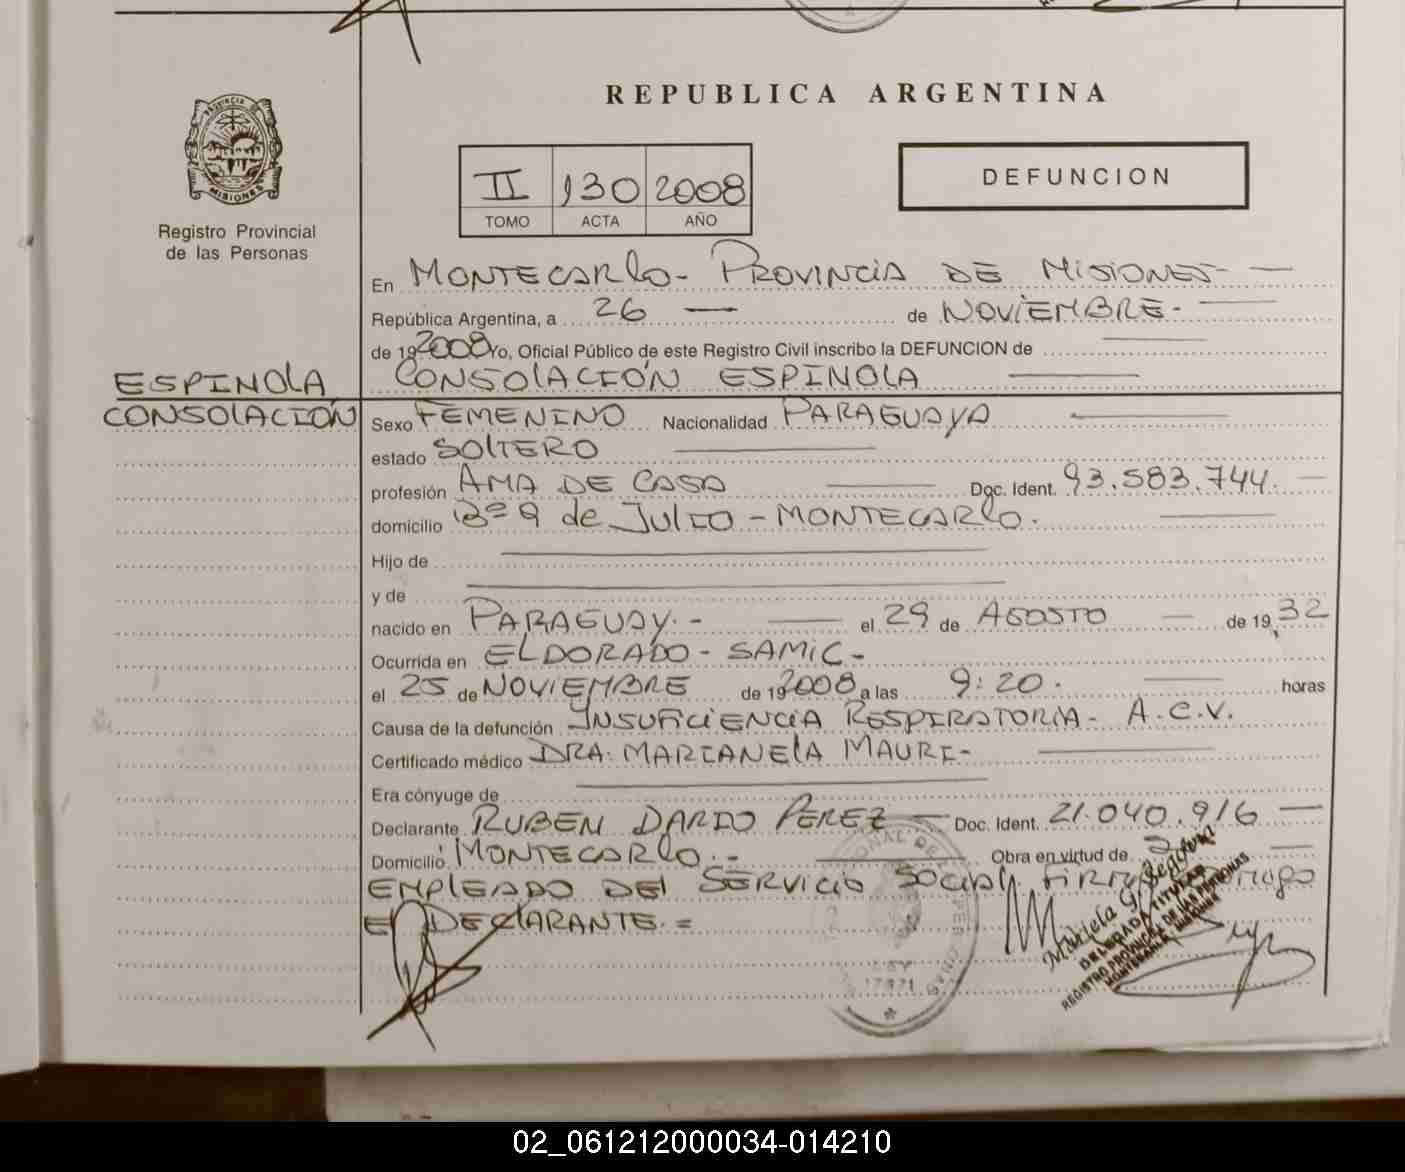 REPUBLICA ARGENTINA
PROVINCIA DE
MISIONES
Registro Provincial
de las Personas
II 130 2008
TOMO ACTA AÑO
DEFUNCION
En MONTECARlo - PROVINCIA DE MISIONES -
República Argentina, a 26 — de NOVIEMBRE. —
de 19 2008 Yo, Oficial Público de este Registro Civil inscribo la DEFUNCION de
CONSOlACIÓN ESPINOLA
ESPINOlA
CONSOLACIÓN
Sexo FEMENINO Nacionalidad PARAGUAYA
estado SOlTERO
profesión AMA DE CASA Doc. Ident. 93.583.744. —
domicilio Bº 9 de Julio - MONTECARlo.
Hijo de
y de
nacido en PARAGUAY. - el 29 de AGOSTO — de 19 32
Ocurrida en ELDORADO - SAMIC -
el 25 de NOVIEMBRE de 19 2008 a las 9:20. horas
Causa de la defunción INSUFICIENCIA RESPIRATORIA - A.C.V.
Certificado médico DRA. MARIANElA MAURI -
Era cónyuge de
Declarante RUBEN DARIO PEREZ — Doc. Ident. 21.040.916 —
Domicilio MONTECARlo. - Obra en virtud de
EMPLEADO DEl SERVICIO SOCIAl. FIRMA
El DEClARANTE. =
LEY
17671
Mariela G.
DELEGADA TITULAR
REGISTRO PROVINCIAL DE LAS PERSONAS
MONTECARLO MISIONES
02_061212000034-014210